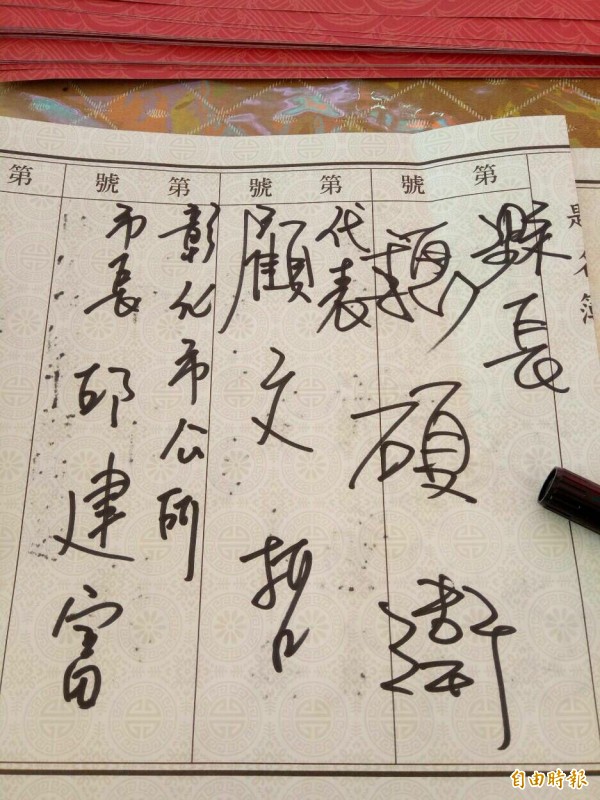 題名簿
第
縣長
號
碩衛
第
代表
號
顧文哲
第
彰化市公所
號
市長 邱建富
第
自由時報